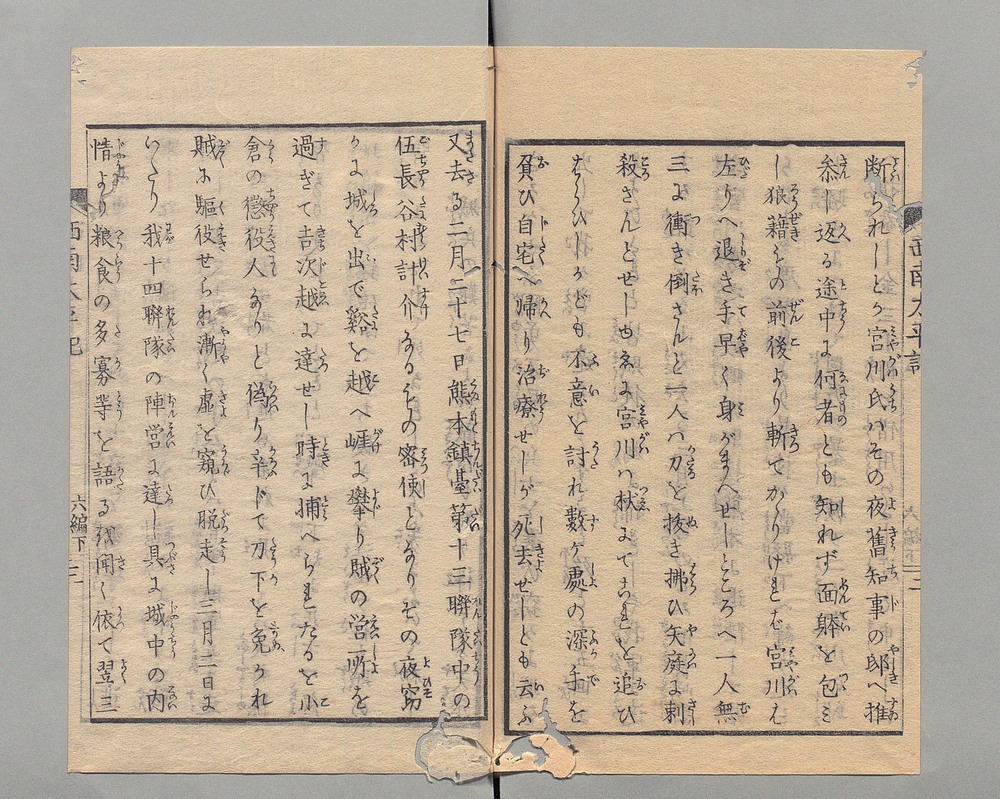 断られしとか宮川氏ハその夜舊知事の邸へ推
叅し返る途中に何者とも知れず面躰を包ミ
し狼藉ものの前後より斬てかゝりけれバ宮川も
左りへ退き手早く身がまへせしところへ一人無
三に衝き倒さんと一人ハ刀を抜き拂ひ矢庭に刺
殺さんとせしもゑに宮川ハ杖にてこれを追ひ
はらひかども不意を討れ數ヶ處の深手を
負ひ自宅へ帰り治療せしが死去せしとも云ふ
又去る二月二十七日熊本鎮臺第十三聯隊中の
伍長谷村計介なるもの密使となりその夜窃
かに城を出で谿を越へ崕に攀り賊の営所を
過ぎて吉次越に達せし時に捕へられたるを小
倉の懲役人なりと偽り辛ドて刀下を免かれ
賊に驅役せられ漸く虚を窺ひ脱走し三月二日に
いたり我十四聯隊の陣営に達し具に城中の内
情より粮食の多寡等を語る越聞く依て翌三
西南太平記
六編下